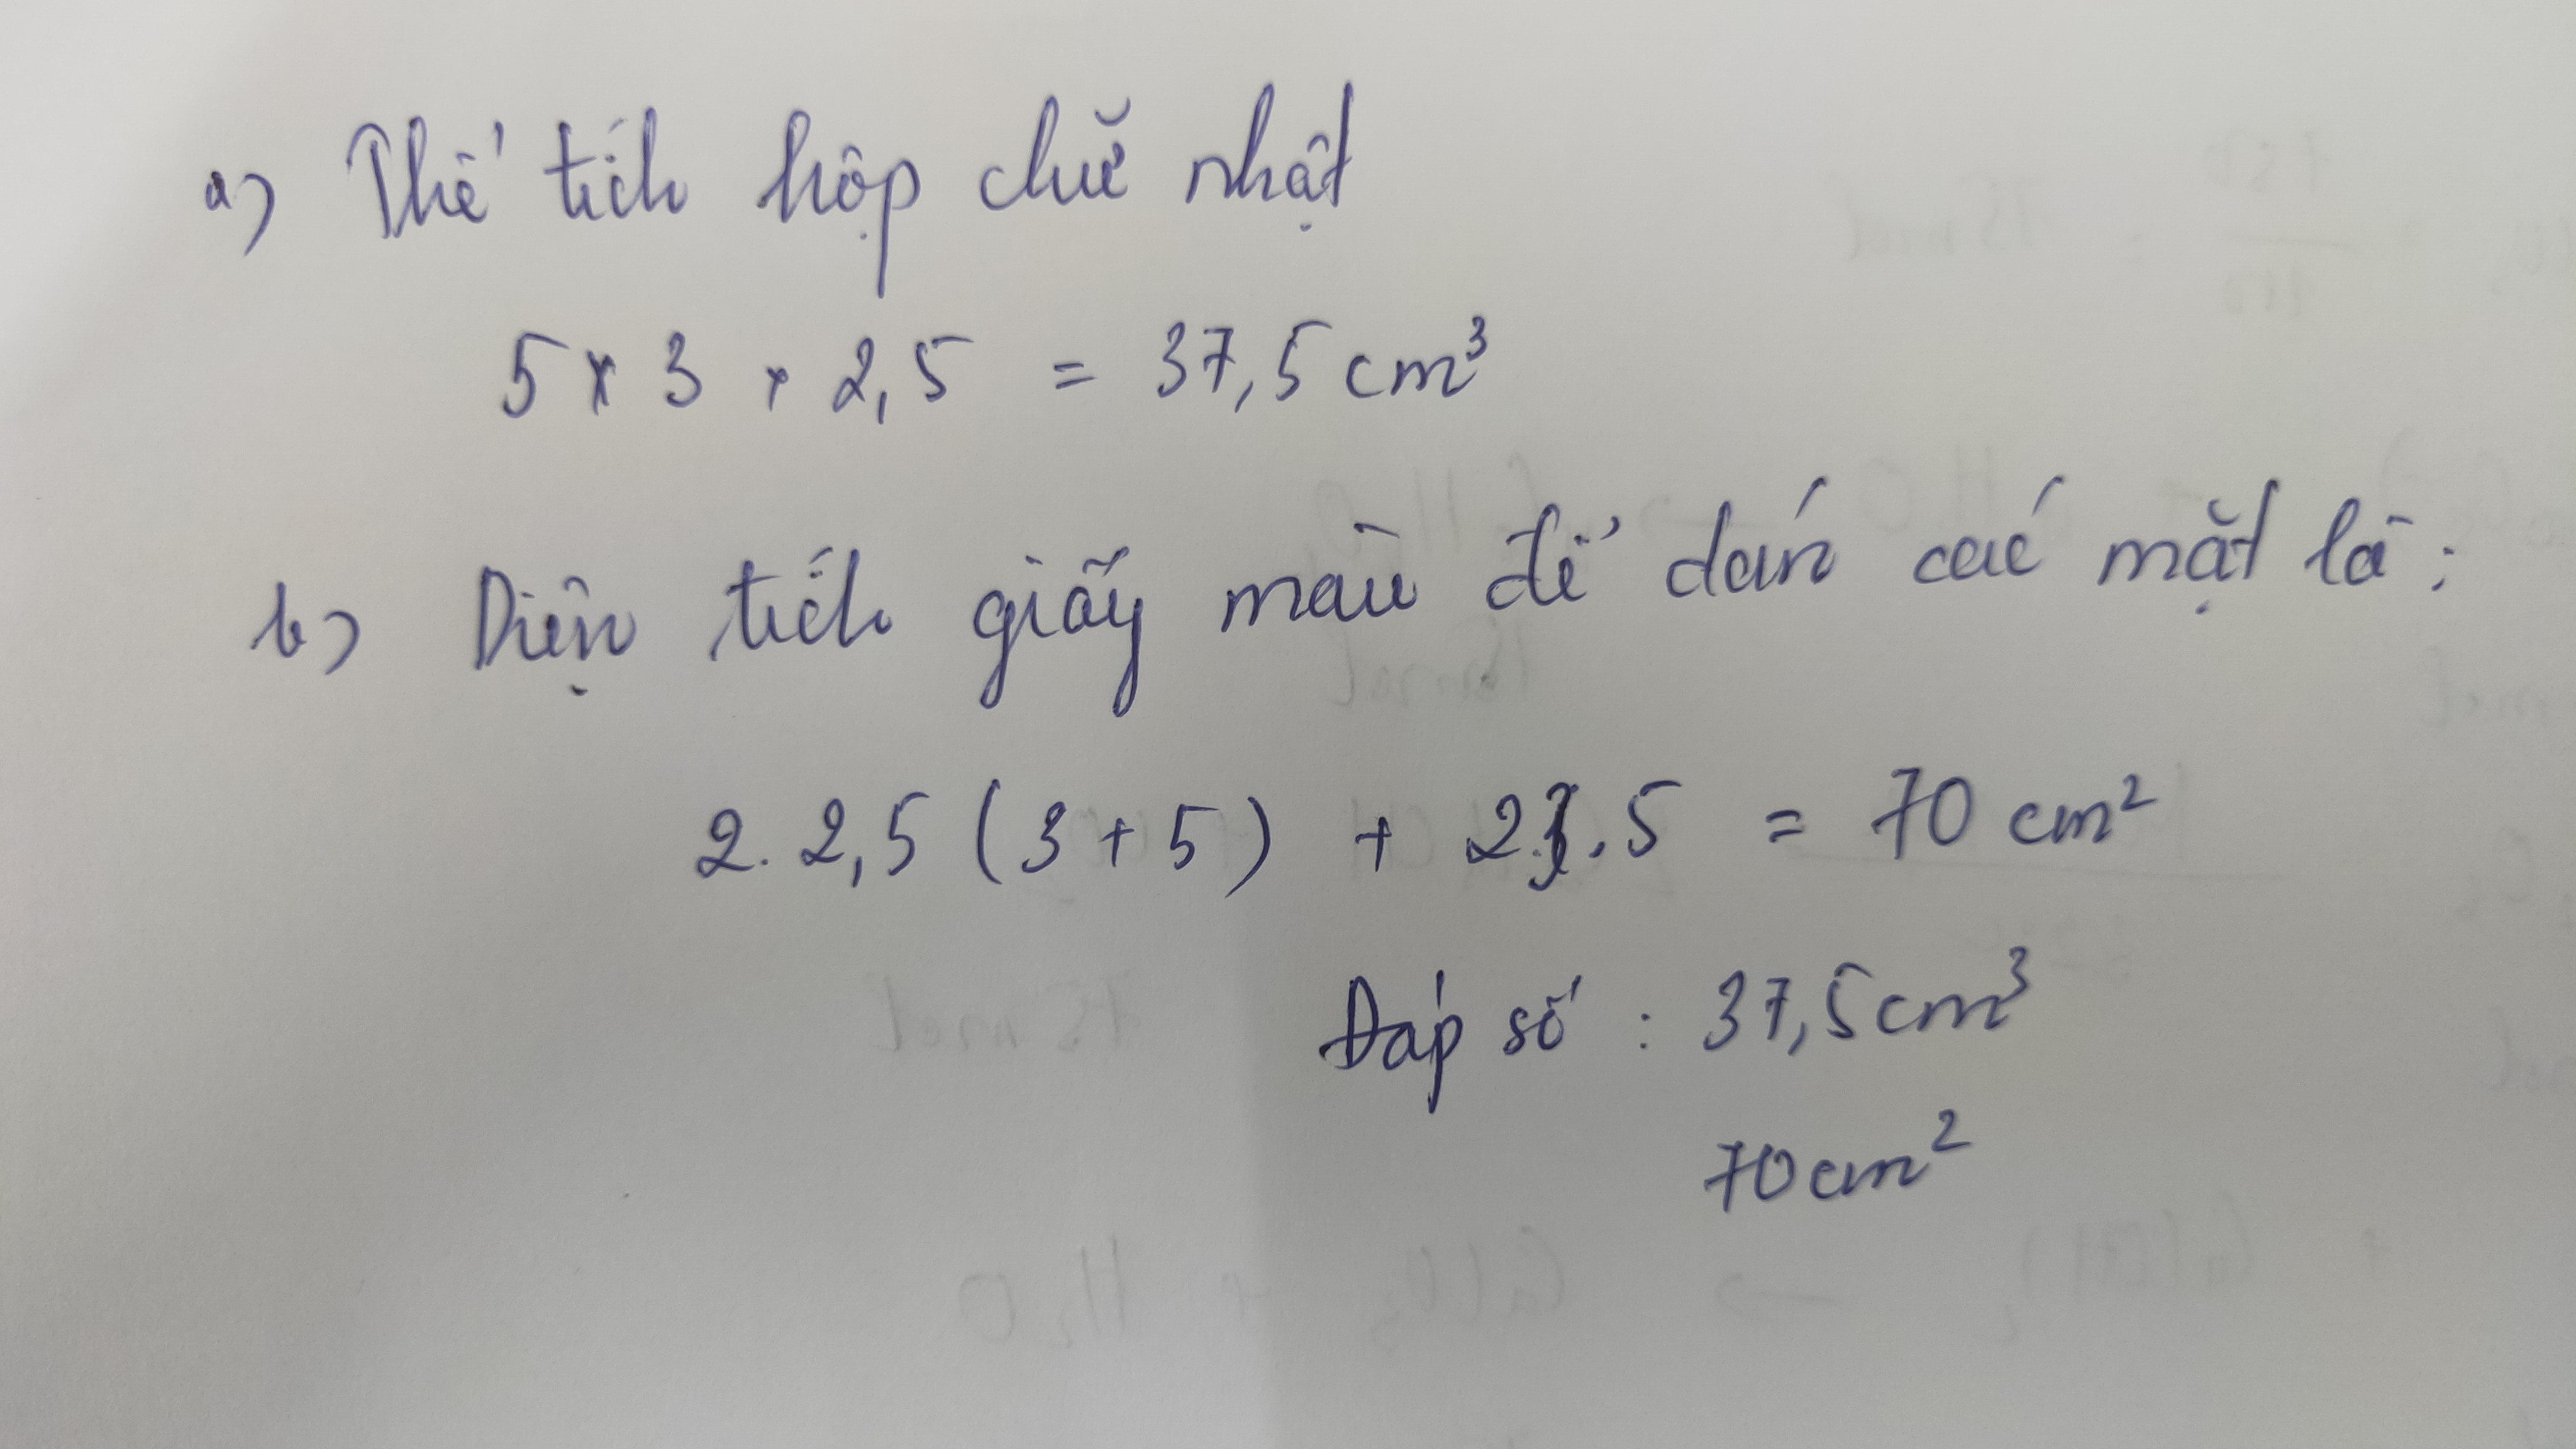 a) Thể tích hộp chữ nhật
5 x 3 x 2,5 = 37,5 cm³
b) Diện tích giấy màu để dán các mặt là:
2. 2,5 (3 + 5) + 2.3.5 = 70 cm²
Đáp số : 37,5cm³
70cm²